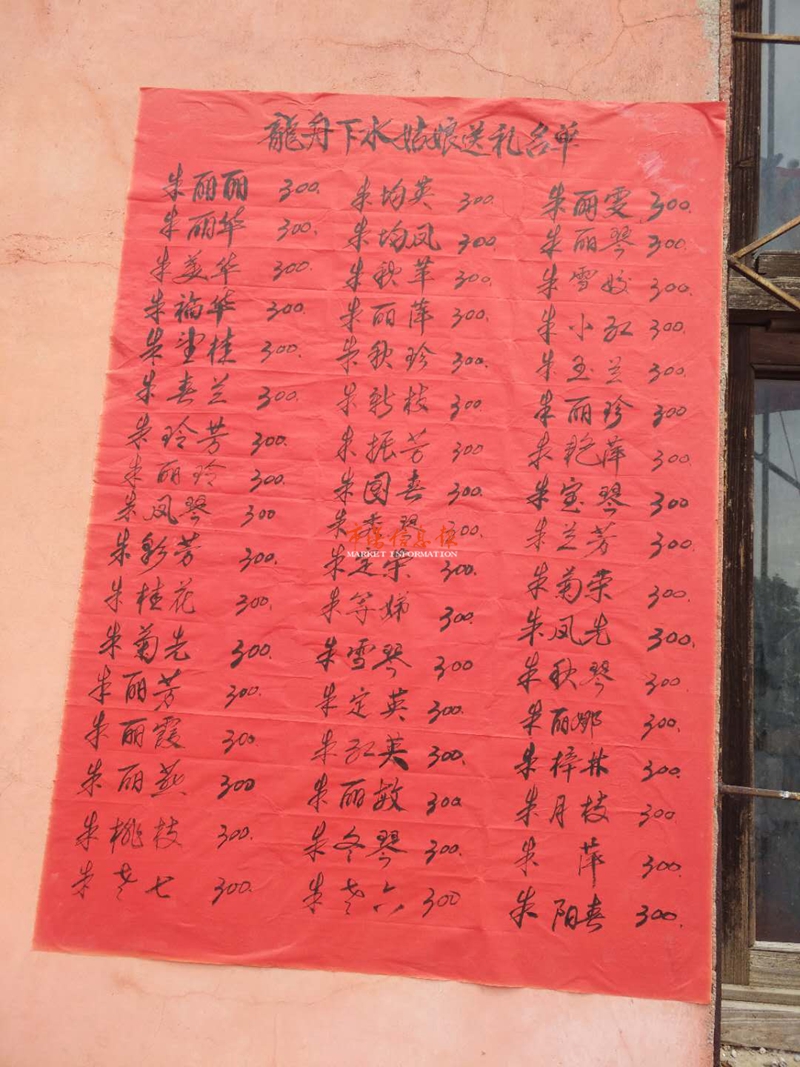 龍舟下水姑娘送礼名单
朱丽丽 300. 朱均英 300. 朱丽雯 300.
朱丽华 300. 朱均凤 300. 朱丽琴 300.
朱美华 300. 朱秋苹 300. 朱雪姣 300.
朱福华 300. 朱丽萍 300. 朱小红 300.
朱望桂 300. 朱秋珍 300. 朱玉兰 300.
朱春兰 300. 朱新枝 300. 朱丽珍 300.
朱玲芳 300. 朱振芳 300. 朱艳萍 300.
朱丽玲 300. 朱国春 300. 朱宝琴 300
朱凤琴 300 朱香琴 300. 朱兰芳 300.
市场信息报
MARKET INFORMATION
朱彩芳 300. 朱定荣 300. 朱菊荣 300.
朱桂花 300. 朱等娣 300. 朱凤先 300.
朱菊先 300. 朱雪琴 300 朱秋琴 300.
朱丽芳 300. 朱定英 300. 朱丽娜 300.
朱丽霞 300 朱红英 300. 朱梓林 300.
朱丽燕 300 朱丽敏 300. 朱月枝 300.
朱桃枝 300. 朱冬琴 300. 朱萍 300.
朱老七 300. 朱老六 300 朱阳春 300.